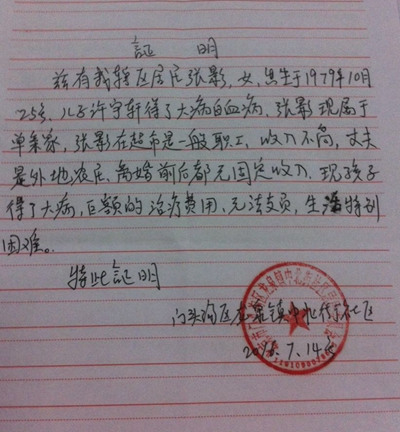 証明
兹有我辖区居民张影,女,出生于1979年10月
25号,儿子许宇轩得了大病白血病,张影现属于
单亲家,张影在超市是一般职工,收入不高,丈夫
是外地农民、离婚前后都无固定收入,现孩子
得了大病,巨额的治疗费用、无法支负,生活特别
困难。
特此証明
门头沟区龙泉镇中北街社区
7.14